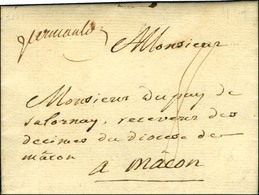 Monsieur
Monsieur du puy de
salornay, receveur des
decimes du diocese de
mâcon
a mâcon